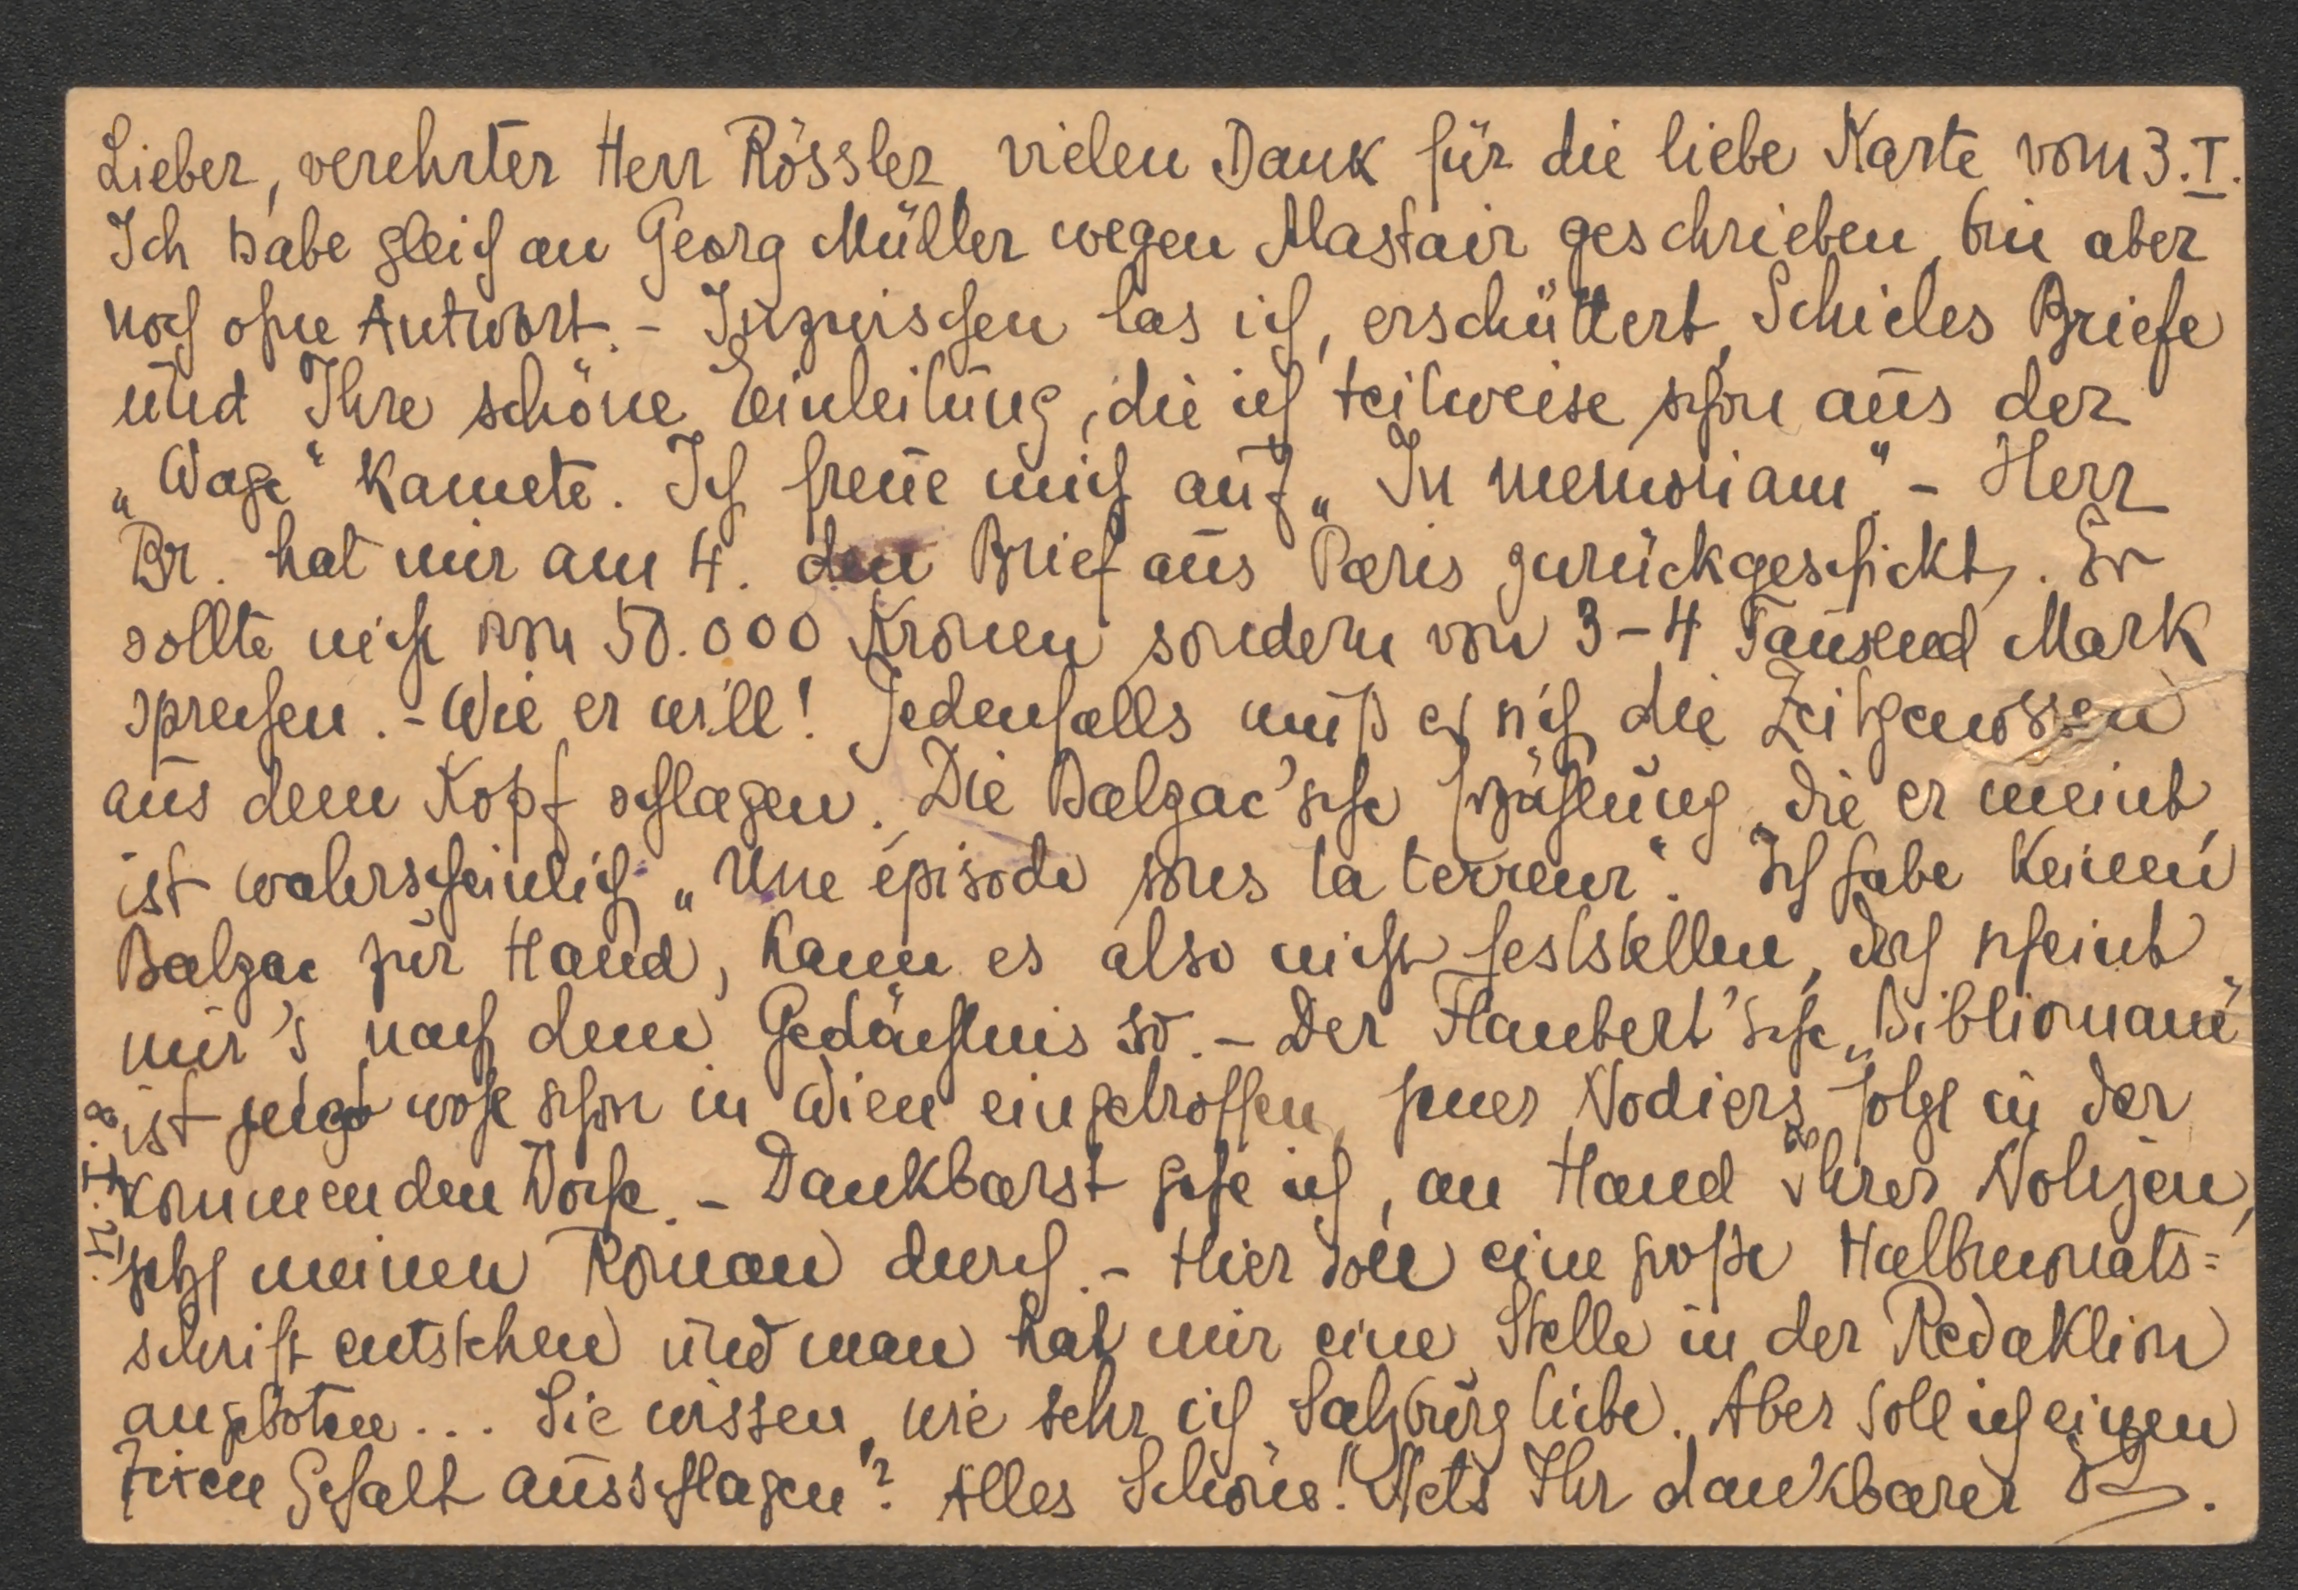 Lieber, verehrter Herr Rössler, vielen Dank für die liebe Karte vom 3. I.
Ich habe gleich an Georg Müller wegen Alastair geschrieben, bin aber
noch ohne Antwort. - Inzwischen las ich, erschüttert, Schieles Briefe
und Ihre schöne Einleitung, die ich teilweise schon aus der
„Wage“ kannte. Ich freue mich auf „In memoriam“. - Herr
Br. hat mir am 4. den Brief aus Paris zurückgeschickt. Er
sollte nicht von 50.000 Kronen sondern von 3-4 Tausend Mark
sprechen. - Wie er will! Jedenfalls muß er sich die Zeitgenossen
aus dem Kopf schlagen. Die Balzac'sche Erzählung, die er meint,
ist wahrscheinlich „Une épisode sous la terreur“. Ich habe keinen
Balzac zur Hand, kann es also nicht feststellen, doch scheint
mir's nach dem Gedächtnis so. - Der Flaubert'sche „Bibliomane“
ist jetzt wohl schon in Wien eingetroffen, jener Nodiers folgt in der
kommenden Woche. - Dankbarst gehe ich, an Hand Ihrer Notizen,
jetzt meinen Roman durch. - Hier soll eine große Halbmonats=
schrift entstehen und man hat mir eine Stelle in der Redaktion
angeboten... Sie wissen, wie sehr ich Salzburg liebe. Aber soll ich einen
fixen Gehalt ausschlagen? Alles Schöne! Stets Ihr dankbarer
8. I. 21.